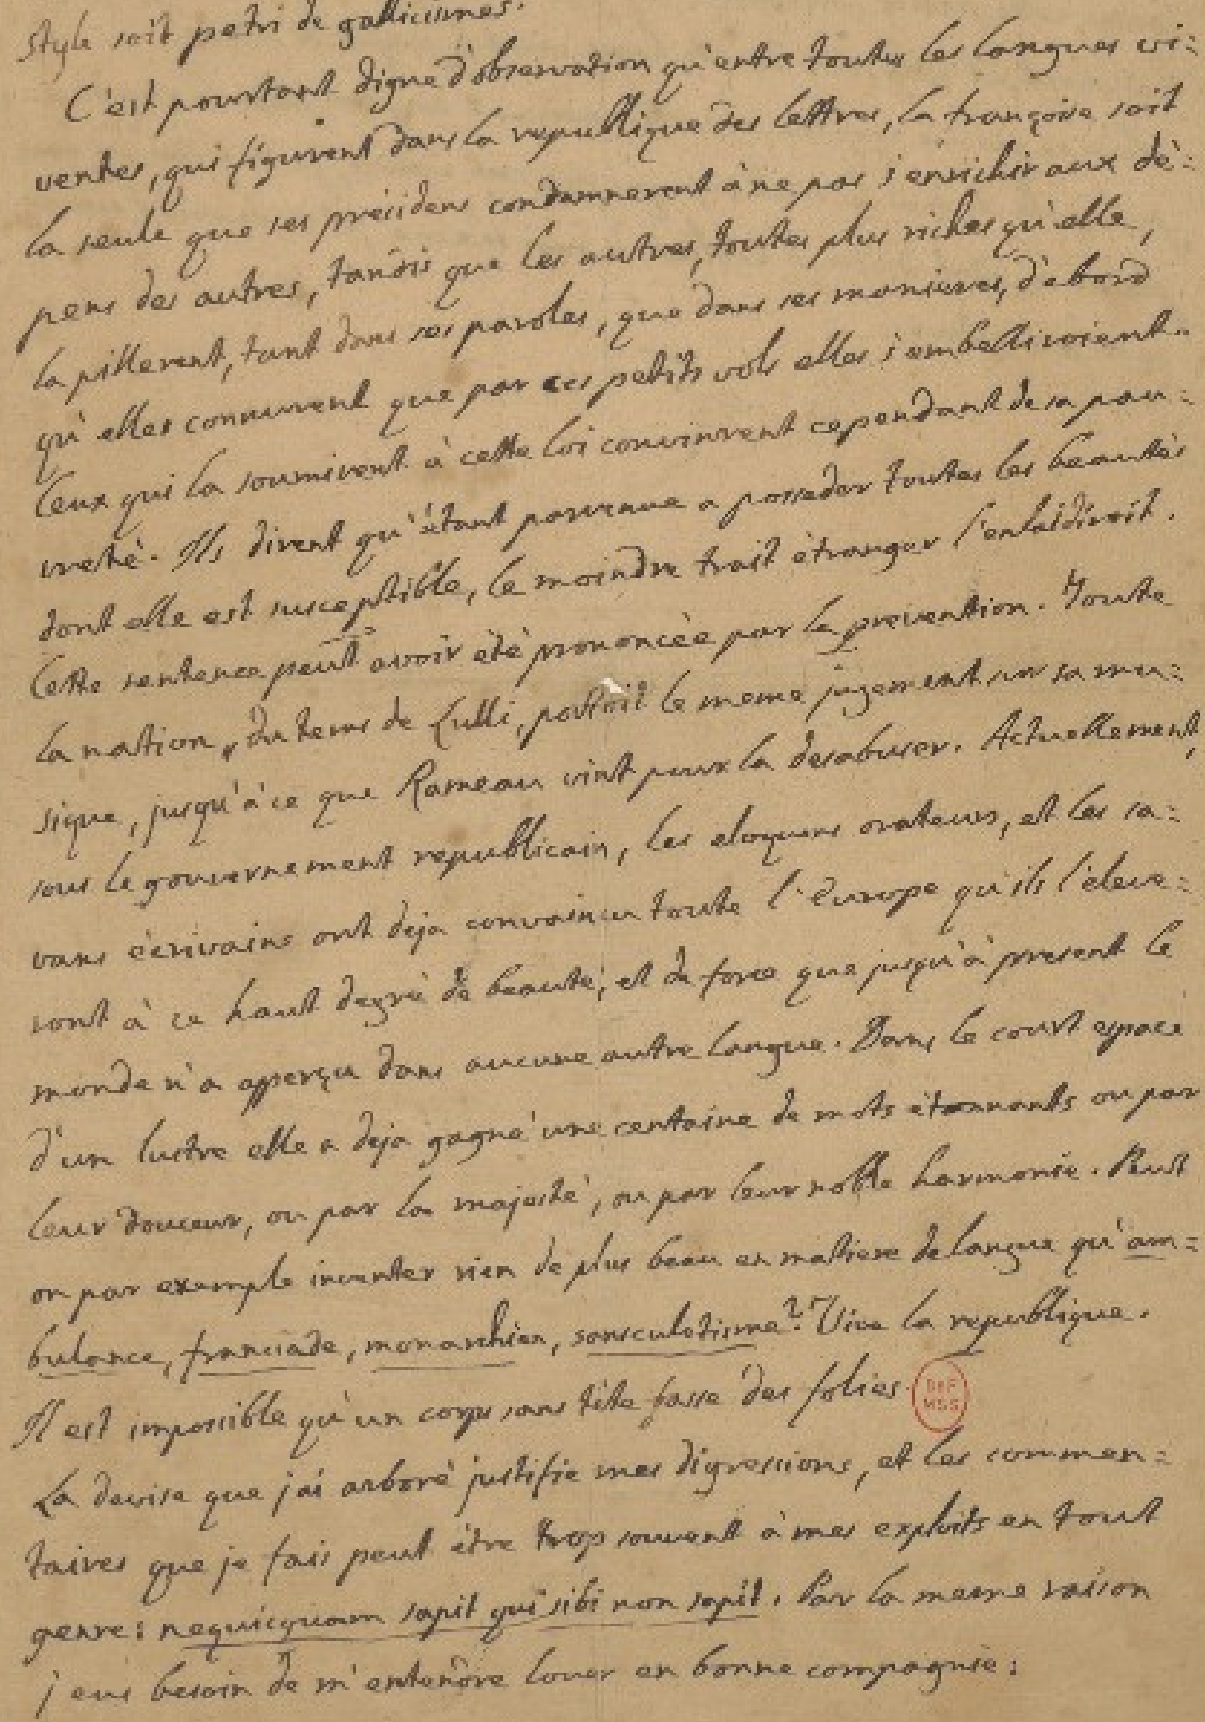 style soit petri de gallicismes.
C'est pourtant digne d'observation qu'entre toutes les langues vi=
ventes, qui figurent dans la republique des lettres, la françoise soit
la seule que ses présidens condamnerent à ne pas s'enrichir aux dé=
pens des autres, tandis que les autres, toutes plus riches qu'elle,
la pillerent, tant dans ses paroles, que dans ses manieres, d'abord
qu'elles connurent que par ces petits vols elles s'embellissoient.
Ceux qui la soumirent à cette loi convinrent cependant de sa pau=
vreté. Ils dirent qu'étant parvenue a posseder toutes les beautés
dont elle est susceptible, le moindre trait étranger l'enlaidiroit.
Cette sentence peut avoir été prononcée par la prevention. Toute
la nation, du tems de Lulli, portoit le meme jugement sur sa mu=
sique, jusqu'à ce que Rameau vint pour la desabuser. Actuellement,
sous le gouvernement republicain, les eloquens orateurs, et les sa=
vans écrivains ont deja convaincu toute l'Europe qu'ils l'éleve=
ront à ce haut degré de beauté, et de force que jusqu'à present le
monde n'a apperçu dans aucune autre langue. Dans le court espace
d'un lustre elle a deja gagné une centaine de mots étonnants ou par
leur douceur, ou par la majesté, ou par leur noble harmonie. Peut
on par exemple inventer rien de plus beau en matiere de langue qu'am=
bulance, franciade, monarchien, sansculotisme? Vive la republique.
Il est impossible qu'un corps sans tête fasse des folies.
BNF
MSS
La devise que j'ai arboré justifie mes digressions, et les commen=
taires que je fais peut être trop souvent à mes exploits en tout
genre: nequicquam sapit qui sibi non sapit. Par la meme raison
j'eus besoin de m'entendre louer en bonne compagnie: